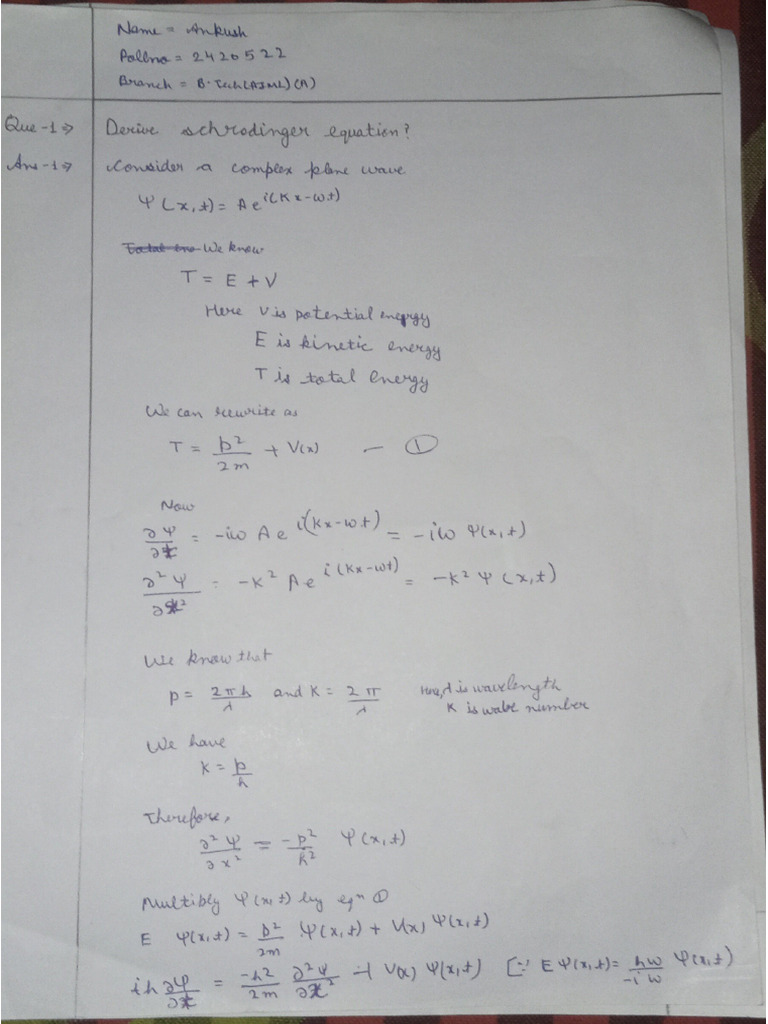 Name = Ankush
Rollno = 2420522
Branch = B.Tech(AIML)(A)
Que-1⇒ Derive schrodinger equation?
Ans-1⇒ Consider a complex plane wave
Ψ(x,t) = Ae^i(Kx-ωt)
We know
T = E + V
Here V is potential energy
E is kinetic energy
T is total energy
We can rewrite as
T = p²/2m + V(x) — ①
Now
∂Ψ/∂t = -iω Ae^i(Kx-ωt) = -iω Ψ(x,t)
∂²Ψ/∂x² = -K² Ae^i(Kx-ωt) = -K² Ψ(x,t)
We know that
p = 2πh/λ and K = 2π/λ Here, λ is wavelength
K is wave number
We have
K = p/h
Therefore,
∂²Ψ/∂x² = -p²/ħ² Ψ(x,t)
Multibly Ψ(x,t) by eqn ①
E Ψ(x,t) = p²/2m Ψ(x,t) + V(x) Ψ(x,t)
ih ∂Ψ/∂t = -h2/2m ∂²Ψ/∂x² + V(x) Ψ(x,t) [∵ EΨ(x,t) = ħω/-iω Ψ(x,t)